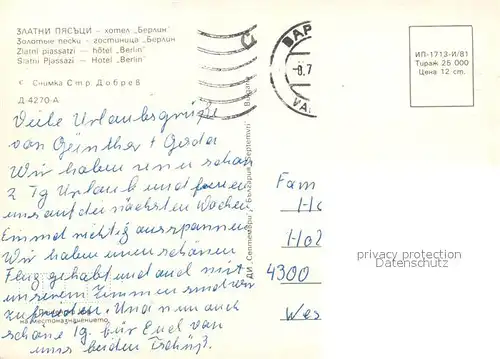 ЗЛАТНИ ПЯСЪЦИ – хотел „Берлин"
Золотые пески – гостиница „Берлин"
Zlatni piassatzi – hôtel „Berlin"
Slatni Pjassazi – Hotel „Berlin"
Снимка Стр. Добрев
Д-4270-А
Viele Urlaubsgrüße
von Günther + Gerda
Wir haben nun schon
2 Tg Urlaub und freuen
uns auf die nächsten Wochen
Einmal richtig ausspannen
Wir haben einen schönen
Flug gehabt und auch mit
unserem Zimmer sind wir
zufrieden. Und nun auch
schöne Tg. für Euch von
uns beiden Tschüß.
на местоназначението
ДИ „Септември", България „Берпетпит"
Bulgaria
ВАР
8.7
VA
ИП-1713-И/81
Тираж 25 000
Цена 12 cm.
Fam
Hol
4300
Wes
privacy protection
Datenschutz